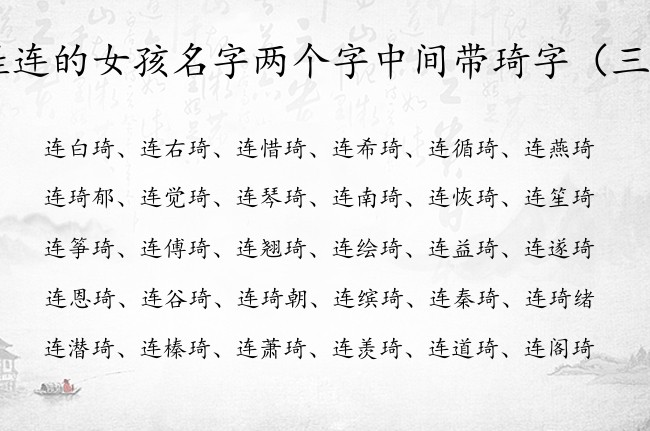 连的女孩名字两个字中间带琦字（三
连白琦、连右琦、连惜琦、连希琦、连循琦、连燕琦
连琦郁、连觉琦、连琴琦、连南琦、连恢琦、连笙琦
连筝琦、连傅琦、连翘琦、连绘琦、连益琦、连遂琦
连恩琦、连谷琦、连琦朝、连缤琦、连秦琦、连琦绪
连潜琦、连榛琦、连萧琦、连羡琦、连道琦、连阁琦